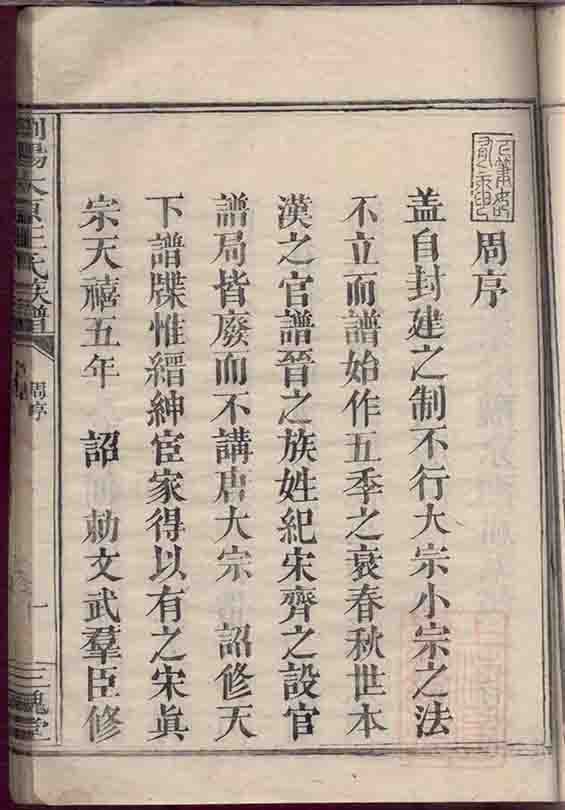 周序
盖自封建之制不行大宗小宗之法
不立而譜始作五季之衰春秋世本
漢之官譜晉之族姓紀宋齊之設官
譜局皆廢而不講唐大宗 詔修天
下譜牒惟縉紳宦家得以有之宋眞
宗天禧五年 詔勅文武羣臣修
瀏陽 王氏族譜
周序
一
三槐堂